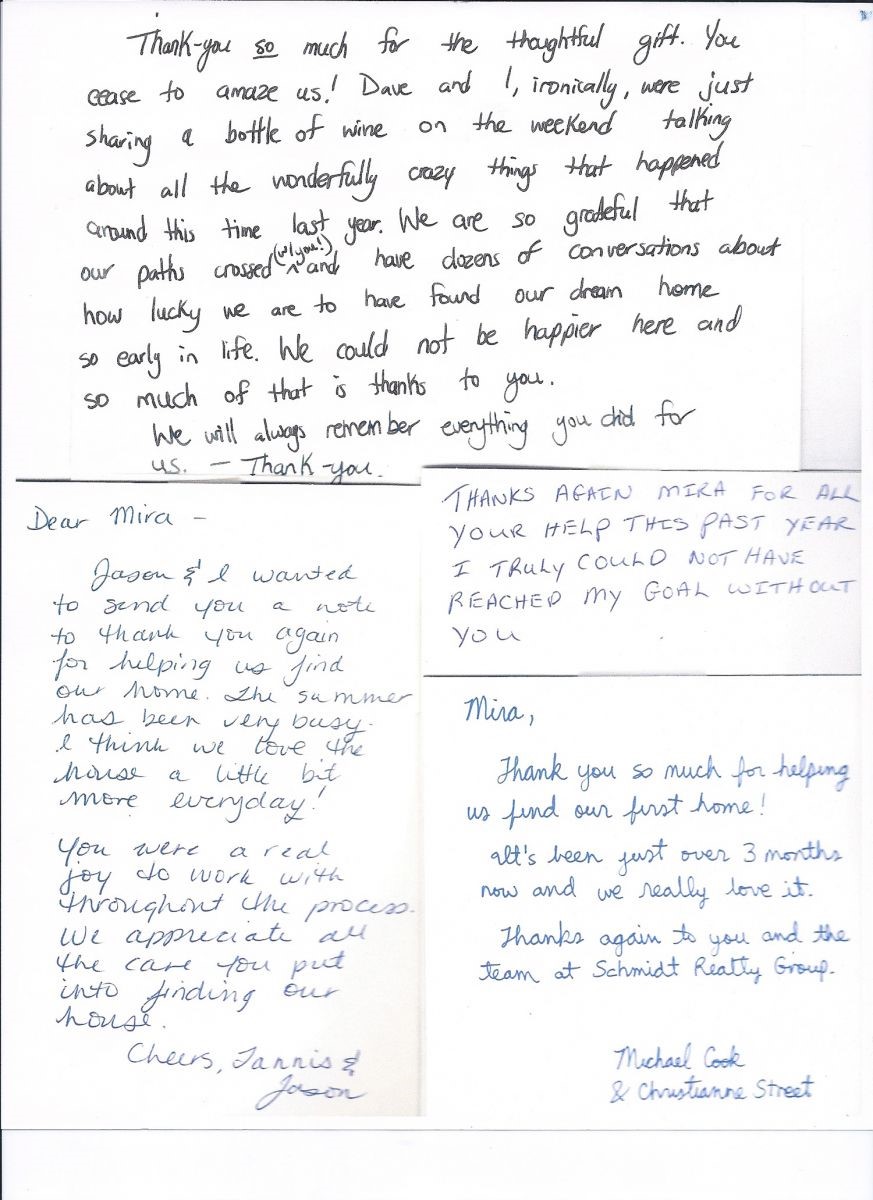 Thank-you so much for the thoughtful gift. You
cease to amaze us! Dave and I, ironically, were just
sharing a bottle of wine on the weekend talking
about all the wonderfully crazy things that happened
around this time last year. We are so grateful that
our paths crossed (w/you!) and have dozens of conversations about
how lucky we are to have found our dream home
so early in life. We could not be happier here and
so much of that is thanks to you.
We will always remember everything you did for
us. — Thank-you.
Dear Mira -
Jason & I wanted
to send you a note
to thank you again
for helping us find
our home. The summer
has been very busy.
I think we love the
house a little bit
more everyday!
You were a real
joy to work with
throughout the process.
We appreciate all
the care you put
into finding our
house.
Cheers, Jannis &
Jason
THANKS AGAIN MIRA FOR ALL
YOUR HELP THIS PAST YEAR
I TRULY COULD NOT HAVE
REACHED MY GOAL WITHOUT
YOU
Mira,
Thank you so much for helping
us find our first home!
It's been just over 3 months
now and we really love it.
Thanks again to you and the
team at Schmidt Realty Group.
Michael Cook
& Christianne Street